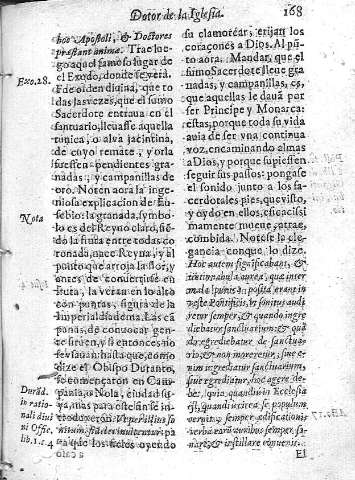 Dotor de la Iglesia. 168
hos Apostoli, & Doctores
præstant animæ. Trae lue-
go aquel famoso lugar de
el Exodo, donde se verá.
Exo.28.
Fue orden divina, que to
das las vezes, que el sumo
Sacerdote entraua en el
santuario, lleuasse aquella
tunica, o alva jacintina,
de cuyo remate, y orla
fuessen pendientes grana-
das, y campanillas de
oro. Noten aora la inge-
niosa explicacion de Eu-
Nota
sebio: la granada, symbo-
lo es del Reyno claro, sié-
do la fruta entre todas co
ronada, nace Reyna, y al
punto que arroja la flor, y
antes de convertirse en
fruta, la veràn en lo alto
con puntas, figura de la
Imperial diadema. Las cā
panas, de convocar gen-
te siruen, y si entonces no
se vsauan: hasta que, como
dize el Obispo Duranto,
Durād.
in ratio-
nali diui
ni Offic.
lib.1.c.4
se començaron en Cam-
pania, o Nola, ciudad su-
ya, mas para este fin se in-
trodoxeron. Vt per istius so
nitum, fideles incitentur:
pa
ra que los fieles oyendo
su clamorear, erijan los
coraçones a Dios. Al pū-
to aora. Mandar, que el
sumo Sacerdote lleue gra-
nadas, y campanillas, es,
que aquellas le dauā por
ser Principe, y Monarca:
estas, porque toda su vida
auia de ser vna continua
voz, encaminando almas
a Dios, y porque supiessen
seguir sus passos: pongase
el sonido junto a los sa-
cerdotales pies, que visto,
y oydo en ellos, eficacissi
mamente mueue, atrae,
combida. Notese la ele-
gancia conque lo dize.
Hoc autem significabant, &
tintinnabula aurea, quæ inter
mala punica posita, erant in
veste Pontificis, vt sonitus audi
retur semper, & quando ingre
diebatur sanctuarium: & quā
do egrediebatur de sanctua-
rio, & non moreretur, siue e-
nim ingrediatur sanctuarium,
siue egrediatur, hoc agere de-
bet,
quando in Ecclesia
sit, quando circa se populum,
semper ædificationis
verba eum
semper so-
nare, & instillare
El